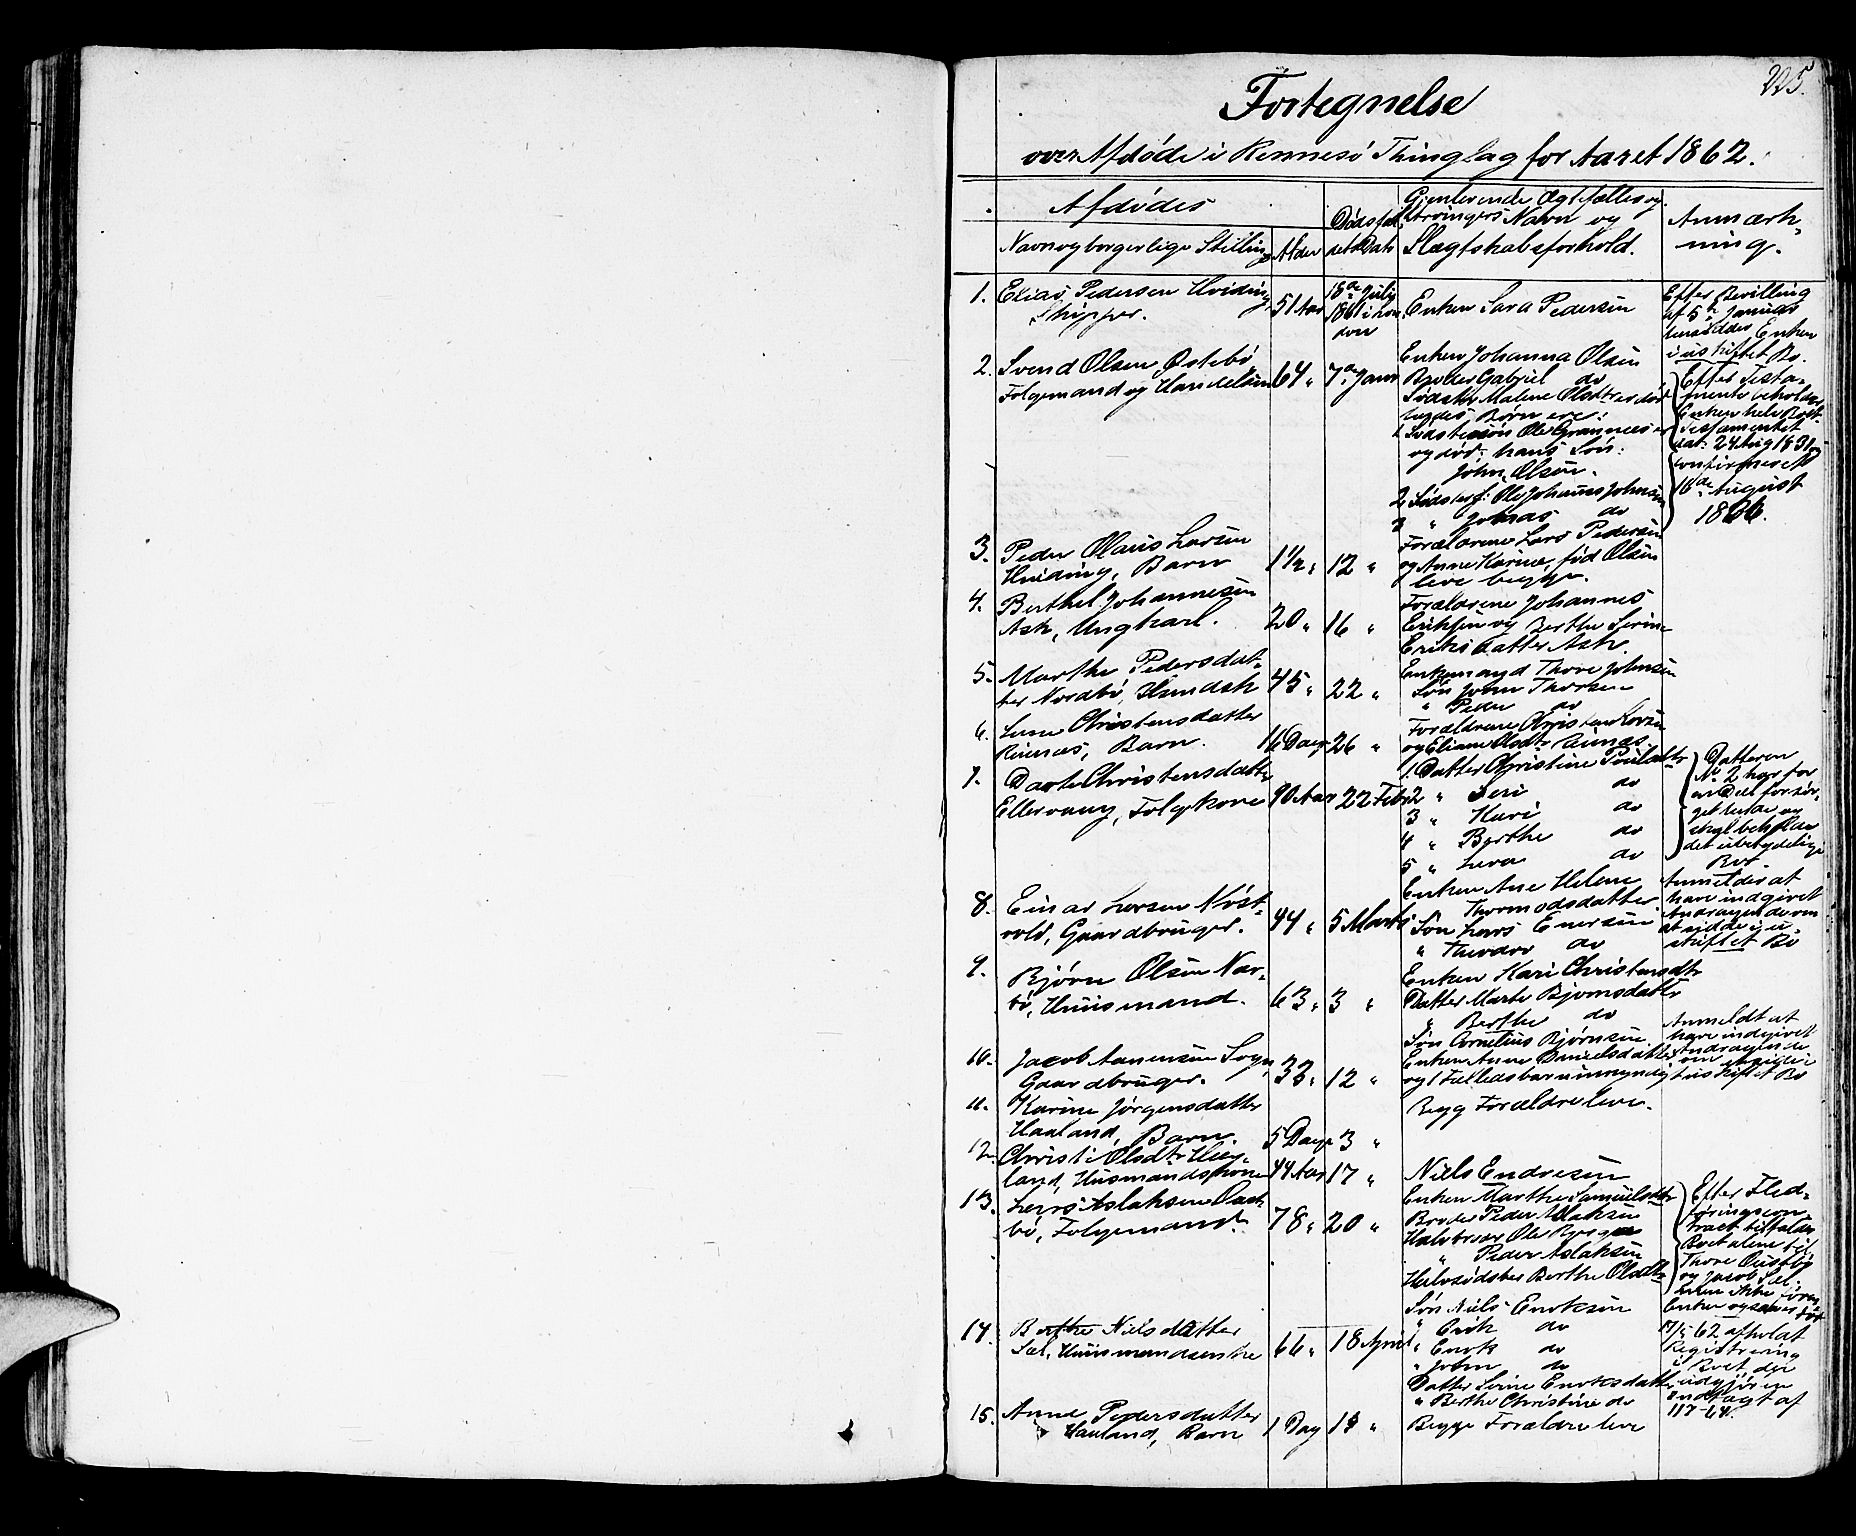 225.
Fortegnelse
over Afdøde i Rennesö Thinglag for Aaret 1862.
Afdödes
Navn og borgerlige Stilling
Alder
Dødsfal-
dets Dato
Gjenlevende Ægtefælles og
Arvingers Navn og
Slægtskabsforhold.
Anmærk-
ning.
1. Elias Pedersen Hviding
Skipper.
51 Aar
18de July
1861 i Lon
don
Enken Sara Pedersen
Efter Bevilling
af 5te Januar
hensidder Enken
i uskiftet Bo.
2. Svend Olsen Østebö
Folgemand og Handelsm
64 "
7de Janr
Enken Johanna Olsen
Broder Gabriel do
Södster Malene Olsdtr er död
hendes Børn ere:
1 Södstersön Ole Grannæs er
og död: hans Sön:
John Olsen.
2 Södsters: Ole Johannes Johnsen
3 " Jonas do
Efter Testa-
mente beholder
Enken hele Boet.
Testamentet
dat: 24 Aug 1831
confirmeret
16de August
1866.
3. Peder Olaus Larsen
Hviding, Barn
1 1/2 "
12 "
Forældrene Lars Pedersen
og Anne Karine, född Olsen
leve begge.
4. Berthel Johannesen
Ask, Ungkarl.
20 "
16 "
Forældrene Johannes
Eriksen og Berthe Serine
Eriksdatter Ask.
5. Marthe Pedersdat-
ter Nordbö, Husmdsk
45 "
22 "
Enkemand Thore Johnsen
Sön John Thorsen
" Peder do
6. Lene Christensdatter
Reinæs, Barn.
16 Dage
26 "
Forældrene Christen Larsen
og Eliane Olsdtr Reinæs
7. Dorte Christensdatter
Ellervaag, Folgekone
90 Aar
22 Febr
1. Datter Christine Poulsdatter
2 " Seri do
3 " Kari do
4 " Berthe do
5 " Lava do
Datteren
No 2 har for
en Deel forsör-
get hende og
skal beholde
det ubetydelige
Bo.
8. Einar Larsen Nöst-
vold, Gaardbruger.
44 "
5 Marts
Enken Ane Helene
Thormodsdatter
Sön Lars Enersen
" Theodor do
Anmelder at
have indgivet
Andragende om
at sidde i u-
skiftet Bo
9. Bjørn Olsen Nor-
bö, Huusmand.
63 "
3 "
Enken Kari Christensdtr
Datter Marte Bjornsdatter
" Berthe do
Sön Cornelius Bjørnsen
10. Jacob Aanensen Sogn
Gaardbruger.
33 "
12 "
Enken Anne Danielsdatter
og 1 Fælledsbarn umyndig
Anmeldt at
have indgivet
Andragende
om at sidde i
uskiftet Bo
11. Karine Jørgensdatter
Haaland, Barn.
5 Dage
3 "
Begg Forældre leve.
12. Christi Olsdtr Hau-
land, Husmandskone
44 Aar
17 "
Niels Endresen
13. Lars Aslaksen Aust-
bö, Folgemand
78 "
20 "
Enken Marthe Samuelsdtr
Broder Peder Aslaksen
Halvbroer Ole Bjerga
" Peder Aslaksen
Halvsödster Berthe Olsdtr
Efter Flæd-
föringscon-
tract tilfalder
Boet alene til
Thore Austbö
og Jacob Sæl.
Enken ogsaa död
14. Berthe Nielsdatter
Sæl, Huusmandsenke
66 "
18 April
Sön Niels Enoksen
" Erik do
" Enok do
" John do
Datter Serine Enoksdatter
" Berthe Christine do
17/5 62 afholdt
Registrering
i Boet der
udgjör en
Indtægt af
117-64.
15. Anne Pedersdatter
Hauland, Barn
1 Dag
15 "
Begge Forældre leve